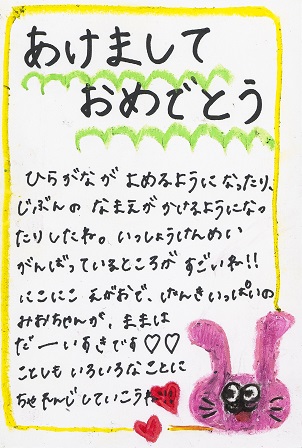 あけまして
おめでとう
ひらがなが よめるようになったり、
じぶんの なまえが かけるようになっ
たりしたね。いっしょうけんめい
がんばっているところが すごいね!!
にこにこ えがおで、げんきいっぱいの
みおちゃんが、ままは
だーいすきです♡♡
ことしも いろいろなことに
ちゃれんじしていこうね